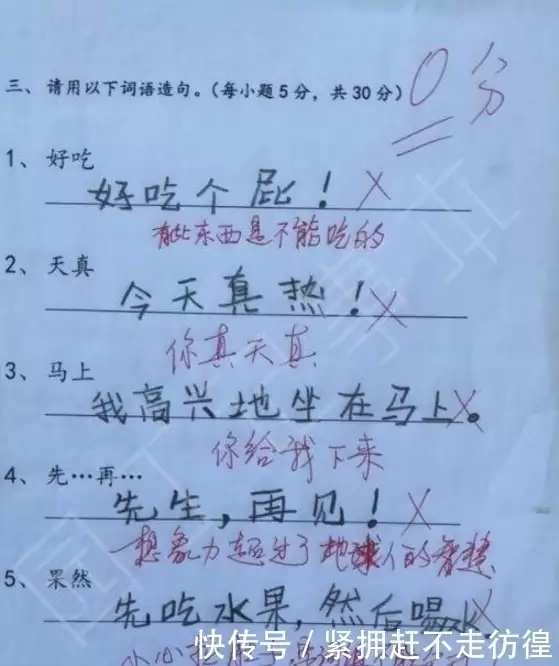 三、请用以下词语造句。(每小题5分，共30分) 0分
1、好吃
好吃个屁！
有些东西是不能吃的
2、天真
今天真热！
你真天真
3、马上
我高兴地坐在马上。
你给我下来
4、先…再…
先生，再见！
想象力超过了地球人的智慧
5、果然
先吃水果，然后喝水
快传号/紧拥赶不走彷徨